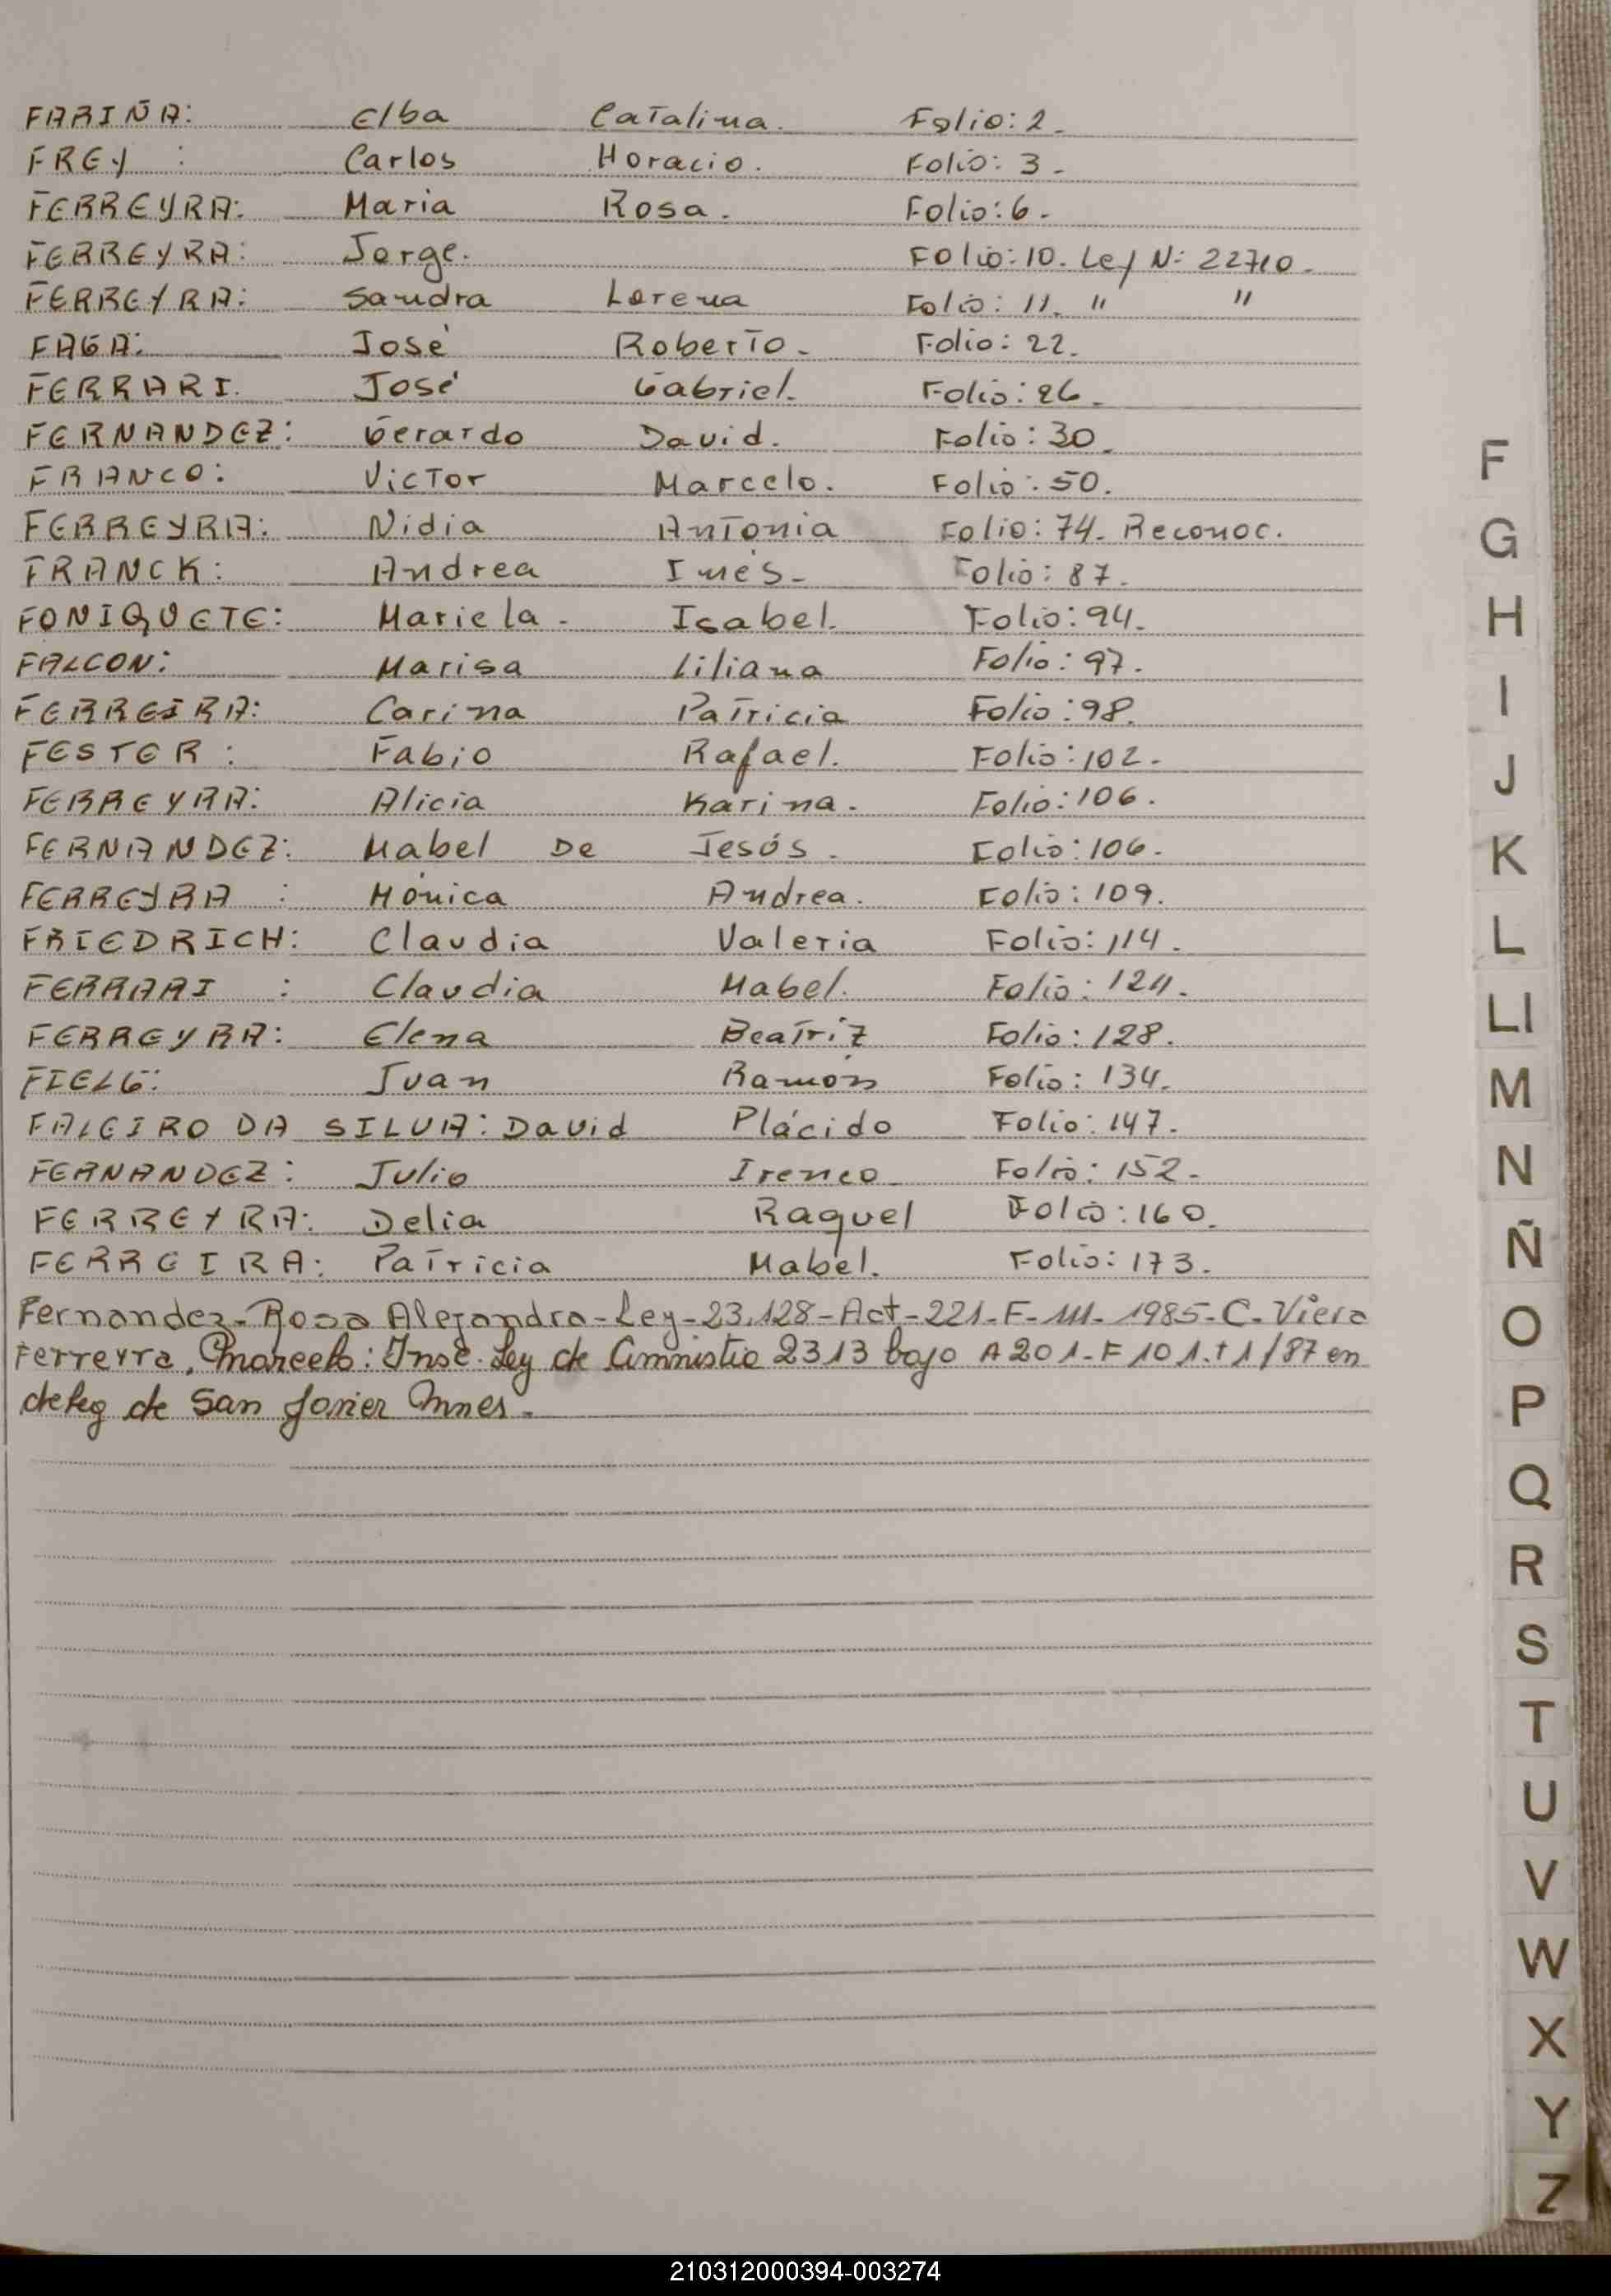 FARIÑA: Elba Catalina. Folio: 2.
FREY : Carlos Horacio. Folio: 3.
FERREYRA: Maria Rosa. Folio: 6.
FERREYRA: Jorge. Folio: 10. Ley N: 22710.
FERREYRA: Sandra Lorena Folio: 11. " "
FAGA: José Roberto. Folio: 22.
FERRARI. José Gabriel. Folio: 26.
FERNANDEZ: Gerardo David. Folio: 30
FRANCO: Victor Marcelo. Folio: 50.
FERREYRA: Nidia Antonia Folio: 74. Reconoc.
FRANCK: Andrea Inés. Folio: 87.
FONIQUETE: Mariela. Isabel. Folio: 94.
FALCON: Marisa Liliana Folio: 97.
FERREIRA: Carina Patricia Folio: 98.
FESTER : Fabio Rafael. Folio: 102.
FERREYRA: Alicia Karina. Folio: 106.
FERNANDEZ: Mabel De Jesús. Folio: 106.
FERREYRA : Mónica Andrea. Folio: 109.
FRIEDRICH: Claudia Valeria Folio: 114.
FERRARI : Claudia Mabel. Folio: 124.
FERREYRA: Elena Beatriz Folio: 128.
FIELG: Juan Ramón Folio: 134.
FALEIRO DA SILVA: David Plácido Folio: 147.
FERNANDEZ: Julio Ireneo. Folio: 152.
FERREYRA: Delia Raquel Folio: 160.
FERREIRA: Patricia Mabel. Folio: 173.
Fernandez-Rosa Alejandra-Ley-23.128-Act-221-F-111-1985-C. Viera
Ferreyra, Marcelo: Insc. Ley de Amnistia 2313 bajo A 201-F 101.t1/87 en
deleg de San Javier Mnes.
F
G
H
I
J
K
L
Ll
M
N
Ñ
O
P
Q
R
S
T
U
V
W
X
Y
Z
210312000394-003274